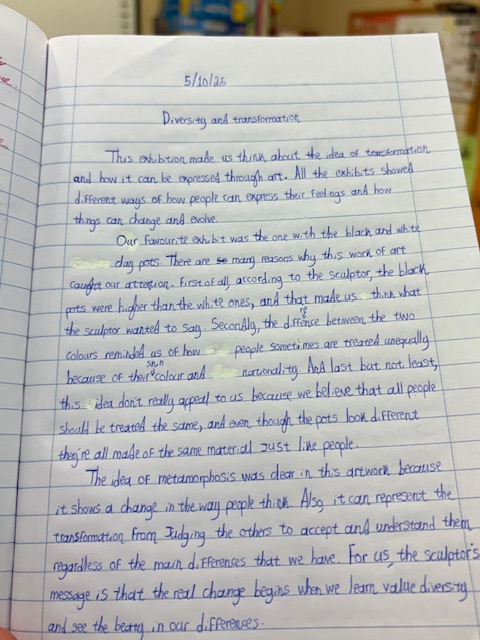 5/10/25
Diversity and transformation
This exhibition made us think about the idea of transformation
and how it can be expressed through art. All the exhibits showed
different ways of how people can express their feelings and how
things can change and evolve.
Our favourite exhibit was the one with the black and white
clay pots. There are so many reasons why this work of art
caught our attention. First of all, according to the sculptor, the black
pots were higher than the white ones, and that made us think what
the sculptor wanted to say. Secondly, the diffrence between the two
colours reminded us of how people sometimes are treated unequally
because of their skin colour and nationality. And last but not least,
this idea don't really appeal to us because we believe that all people
should be treated the same, and even, though the pots look different
they're all made of the same material Just like people.
The idea of metamorphosis was clear in this artwork because
it shows a change in the way people think. Also, it can represent the
transformation from Judging the others to accept and understand them
regardless of the main differences that we have. For us, the sculptor's
message is that the real change begins when we learn value diversity
and see the beaty in our differences.